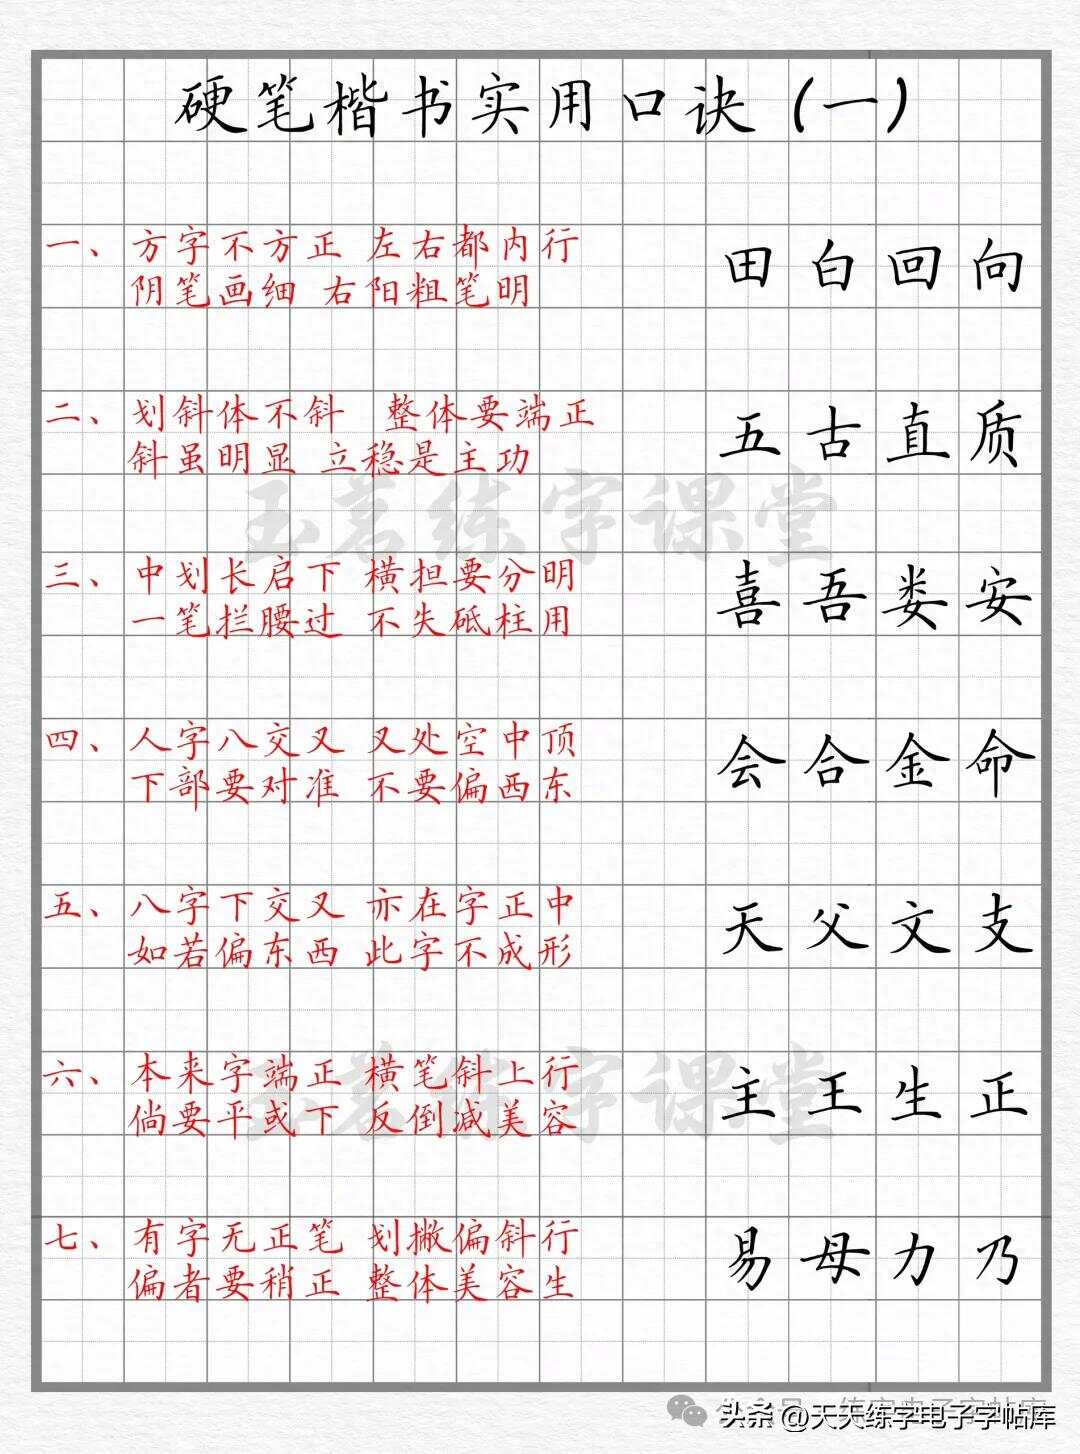 硬笔楷书实用口诀(一)
一、方字不方正 左右都内行 田白回向
阴笔画细 右阳粗笔明
二、划斜体不斜 整体要端正 五古直质
斜虽明显 立稳是主功
三、中划长启下 横担要分明 喜吾娄安
一笔拦腰过 不失砥柱用
四、人字八交叉 叉处空中顶 会合金命
下部要对准 不要偏西东
五、八字下交叉 亦在字正中 天父文支
如若偏东西 此字不成形
六、本来字端正 横笔斜上行 主王生正
倘要平或下 反倒减美容
七、有字无正笔 划撇偏斜行 易母力乃
偏者要稍正 整体美容生
玉茗练字课堂
玉茗练字课堂
头条 @天天练字电子字帖库